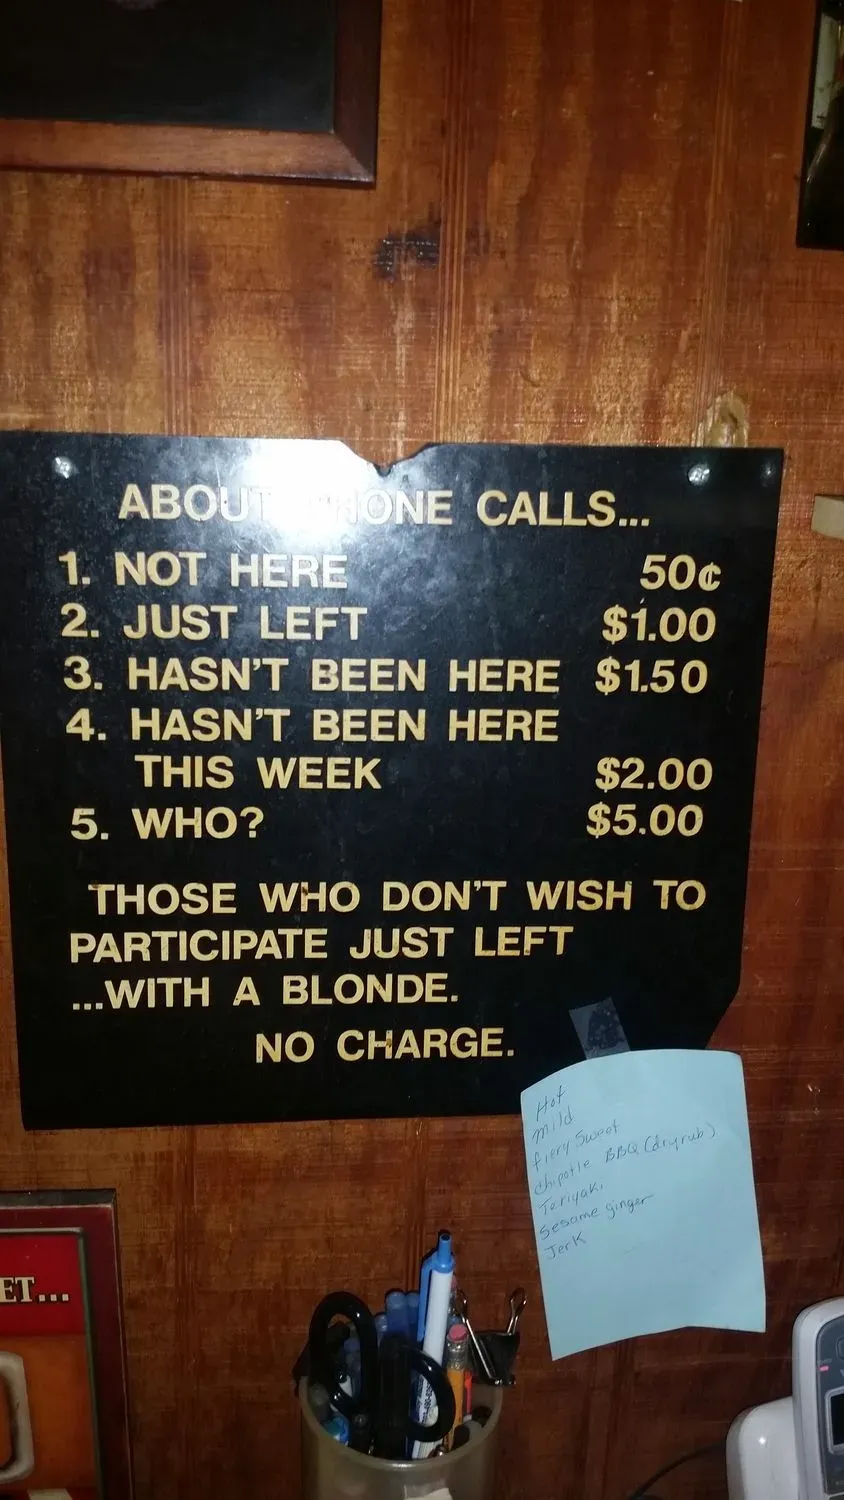 ABOUT PHONE CALLS...
1. NOT HERE 50¢
2. JUST LEFT $1.00
3. HASN'T BEEN HERE $1.50
4. HASN'T BEEN HERE
THIS WEEK $2.00
5. WHO? $5.00
THOSE WHO DON'T WISH TO
PARTICIPATE JUST LEFT
...WITH A BLONDE.
NO CHARGE.
Hot
mild
fiery Sweet
chipotle BBQ (dry rub)
Teriyaki
Sesame ginger
Jerk
ET...